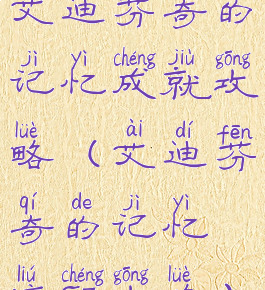 艾迪芬奇的
jì yì chéng jiù gōng
记忆成就攻
lüè ài dí fēn
略(艾迪芬
qí de jì yì
奇的记忆
liú chéng gōng lüè